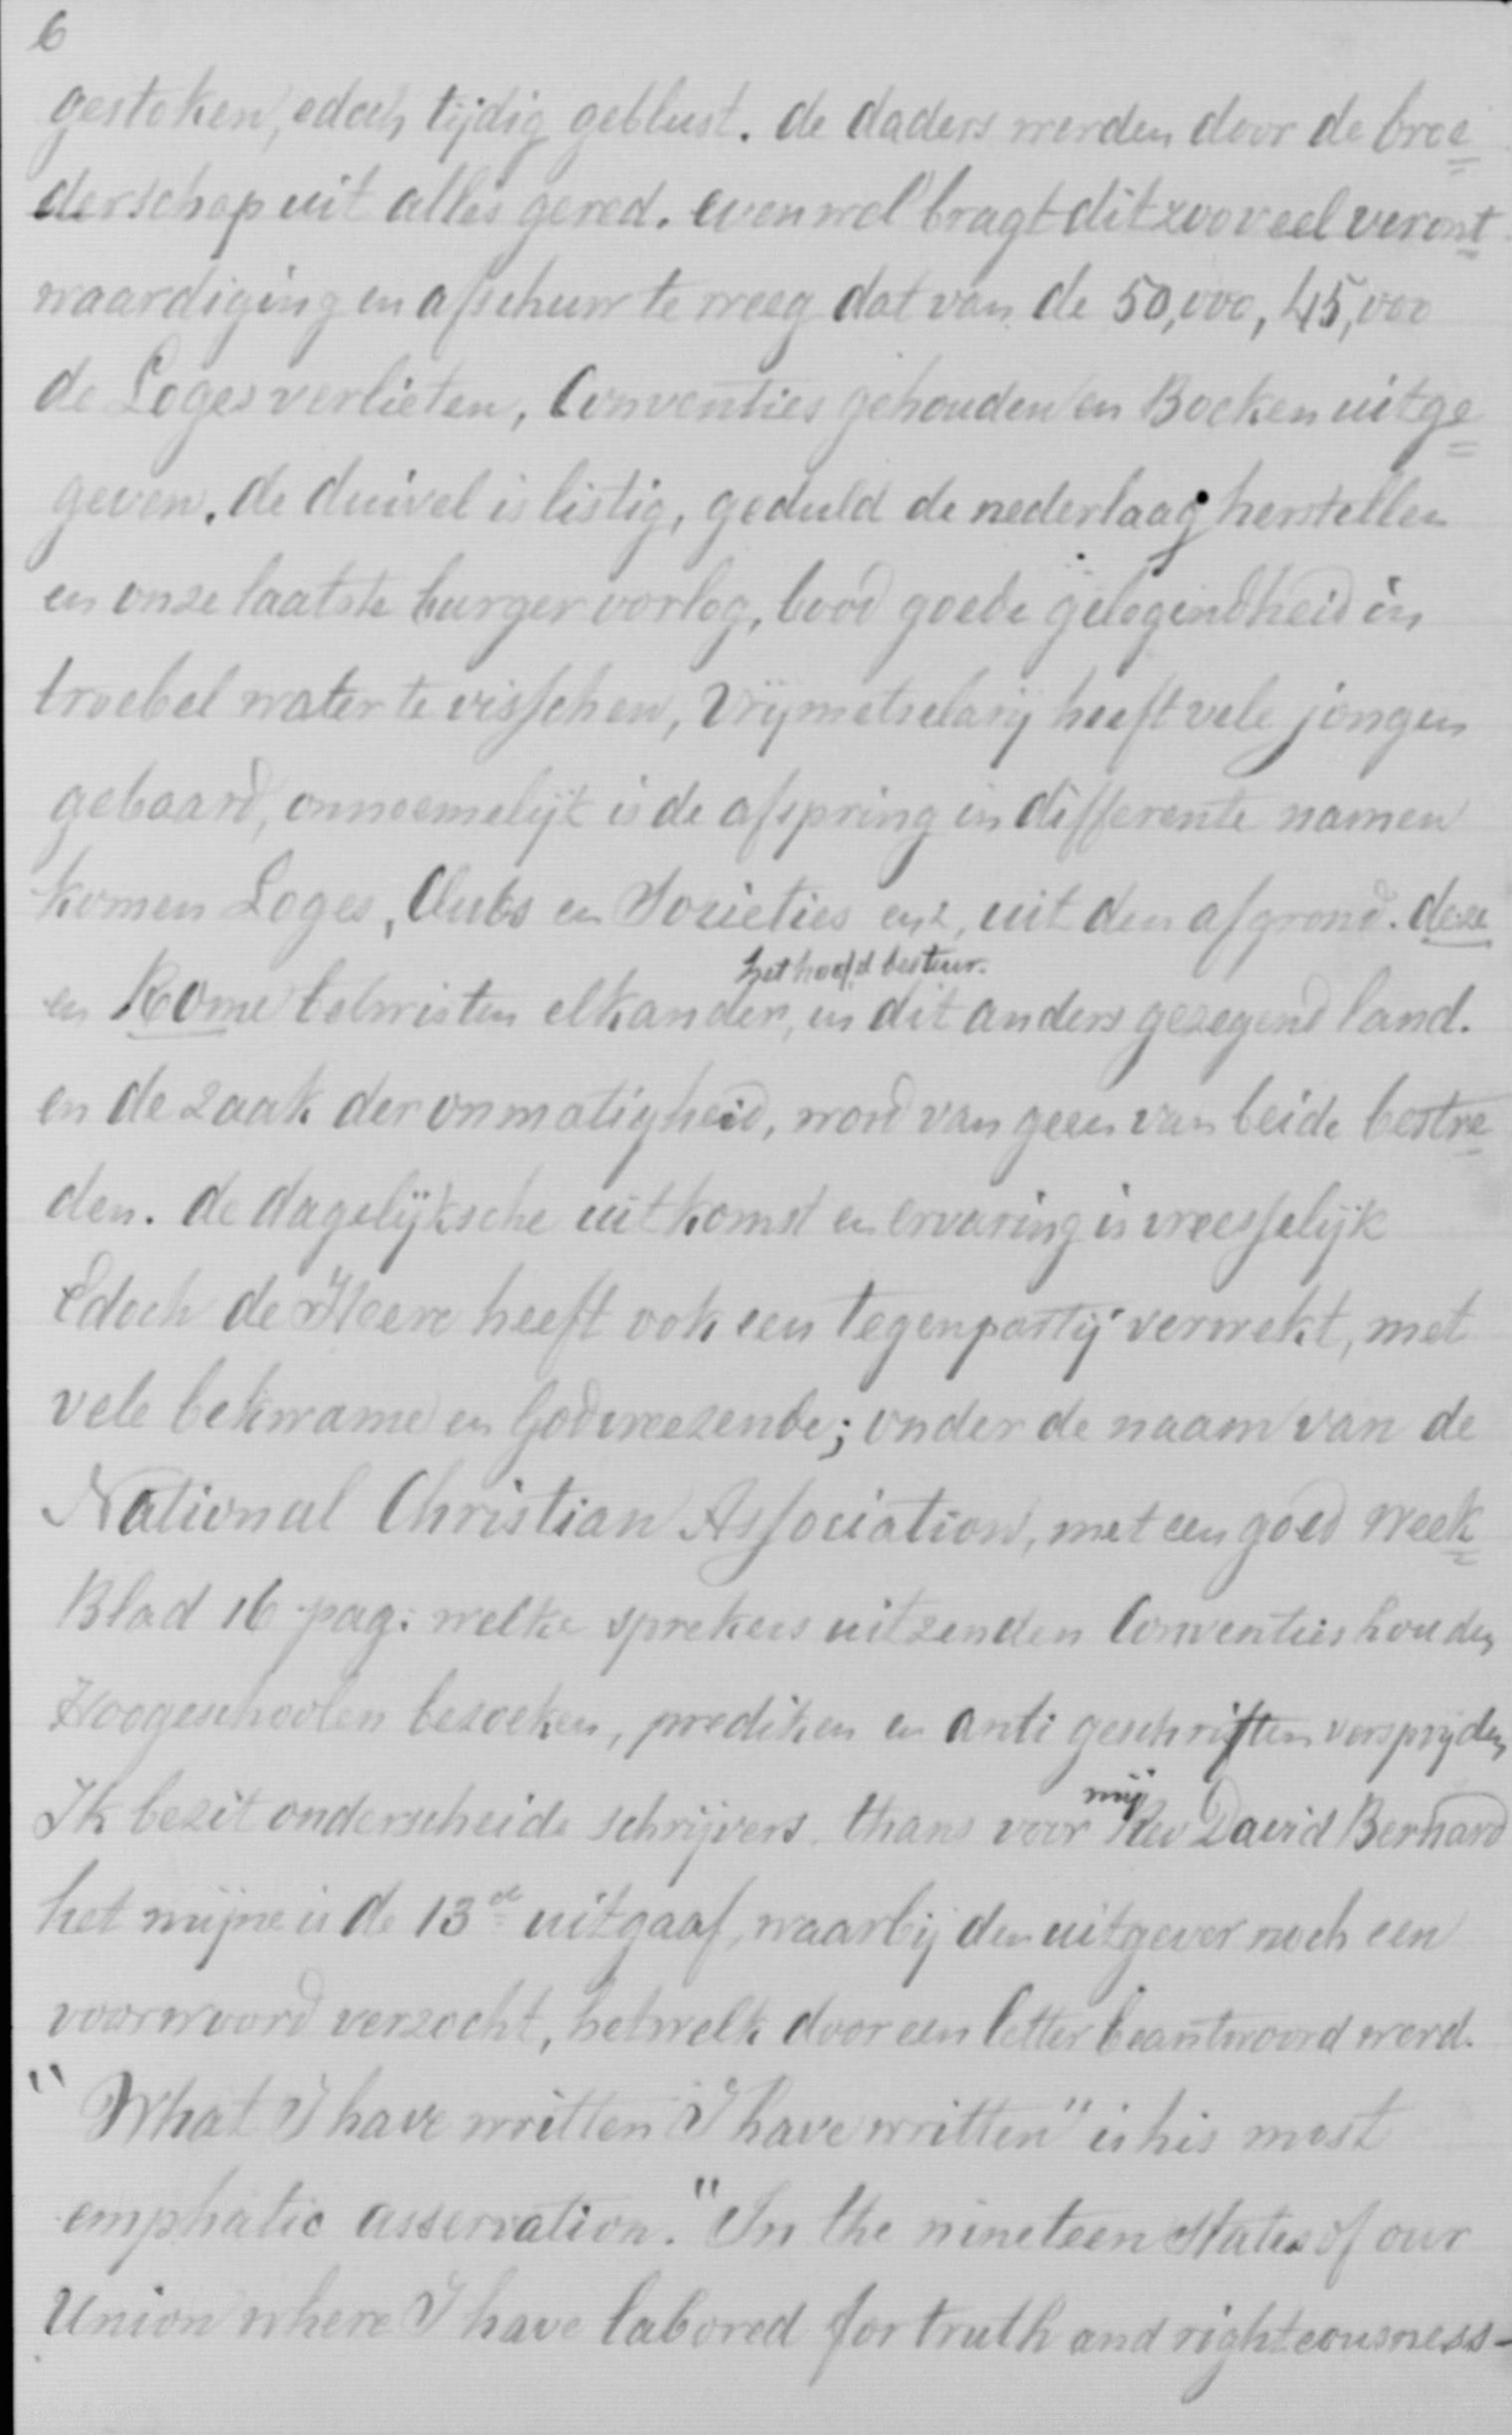 6
gestoken, edoch tijdig geblust. de daders werden door de broe
derschap uit alles gered. evenwel bragt dit zooveel veront
waardiging en afschuw te weeg dat van de 50,000, 45,000
de Loges verlieten, Conventies gehouden en Boeken uitge
geven. de duivel is listig, geduld de nederlaag herstellen
en onze laatste burger oorlog, bood goede gelegendheid in
troebel water te visschen, Vrijmetselarij heeft vele jongen
gebaard, onnoemelijk is de afspring in differente namen
komen Loges, Clubs en Societies enz, uit den afgrond. deze
het hoofd bestuur.
en Rome betwisten elkander, in dit anders gezegend land.
en de zaak der onmatigheid, word van geen van beide bestre
den. de dagelijksche uitkomst en ervaring is vreesselijk
Edoch de Heere heeft ook een tegenpartij verwekt, met
vele bekwame en Godvreezende; onder de naam van de
National Christian Association, met een goed week
Blad 16 pag: welke sprekers uitzenden Conventies houden
Hoogeschoolen bezoeken, prediken en anti geschriften versprijden
mij
Ik bezit onderscheide schrijvers. thans voor Rev David Bernard
het mijne is de 13de uitgaaf, waarbij den uitgever noch een
voorwoord verzocht, hetwelk door een letter beantwoord werd.
"What I have written I have written" is his most
emphatic asservation. "In the nineteen States of our
Union where I have labored for truth and righteousness-